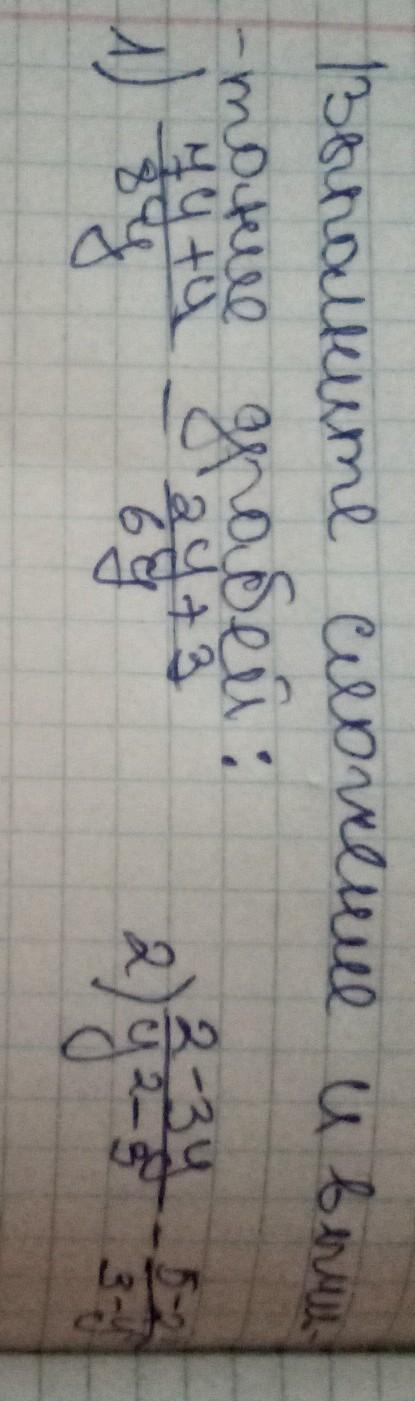 Выполните сложение и вычи-
-тание дробей:
1) 4y+4/8y - 2y+3/6y 2) 2-3y/y²-9 - 5-2/3-y